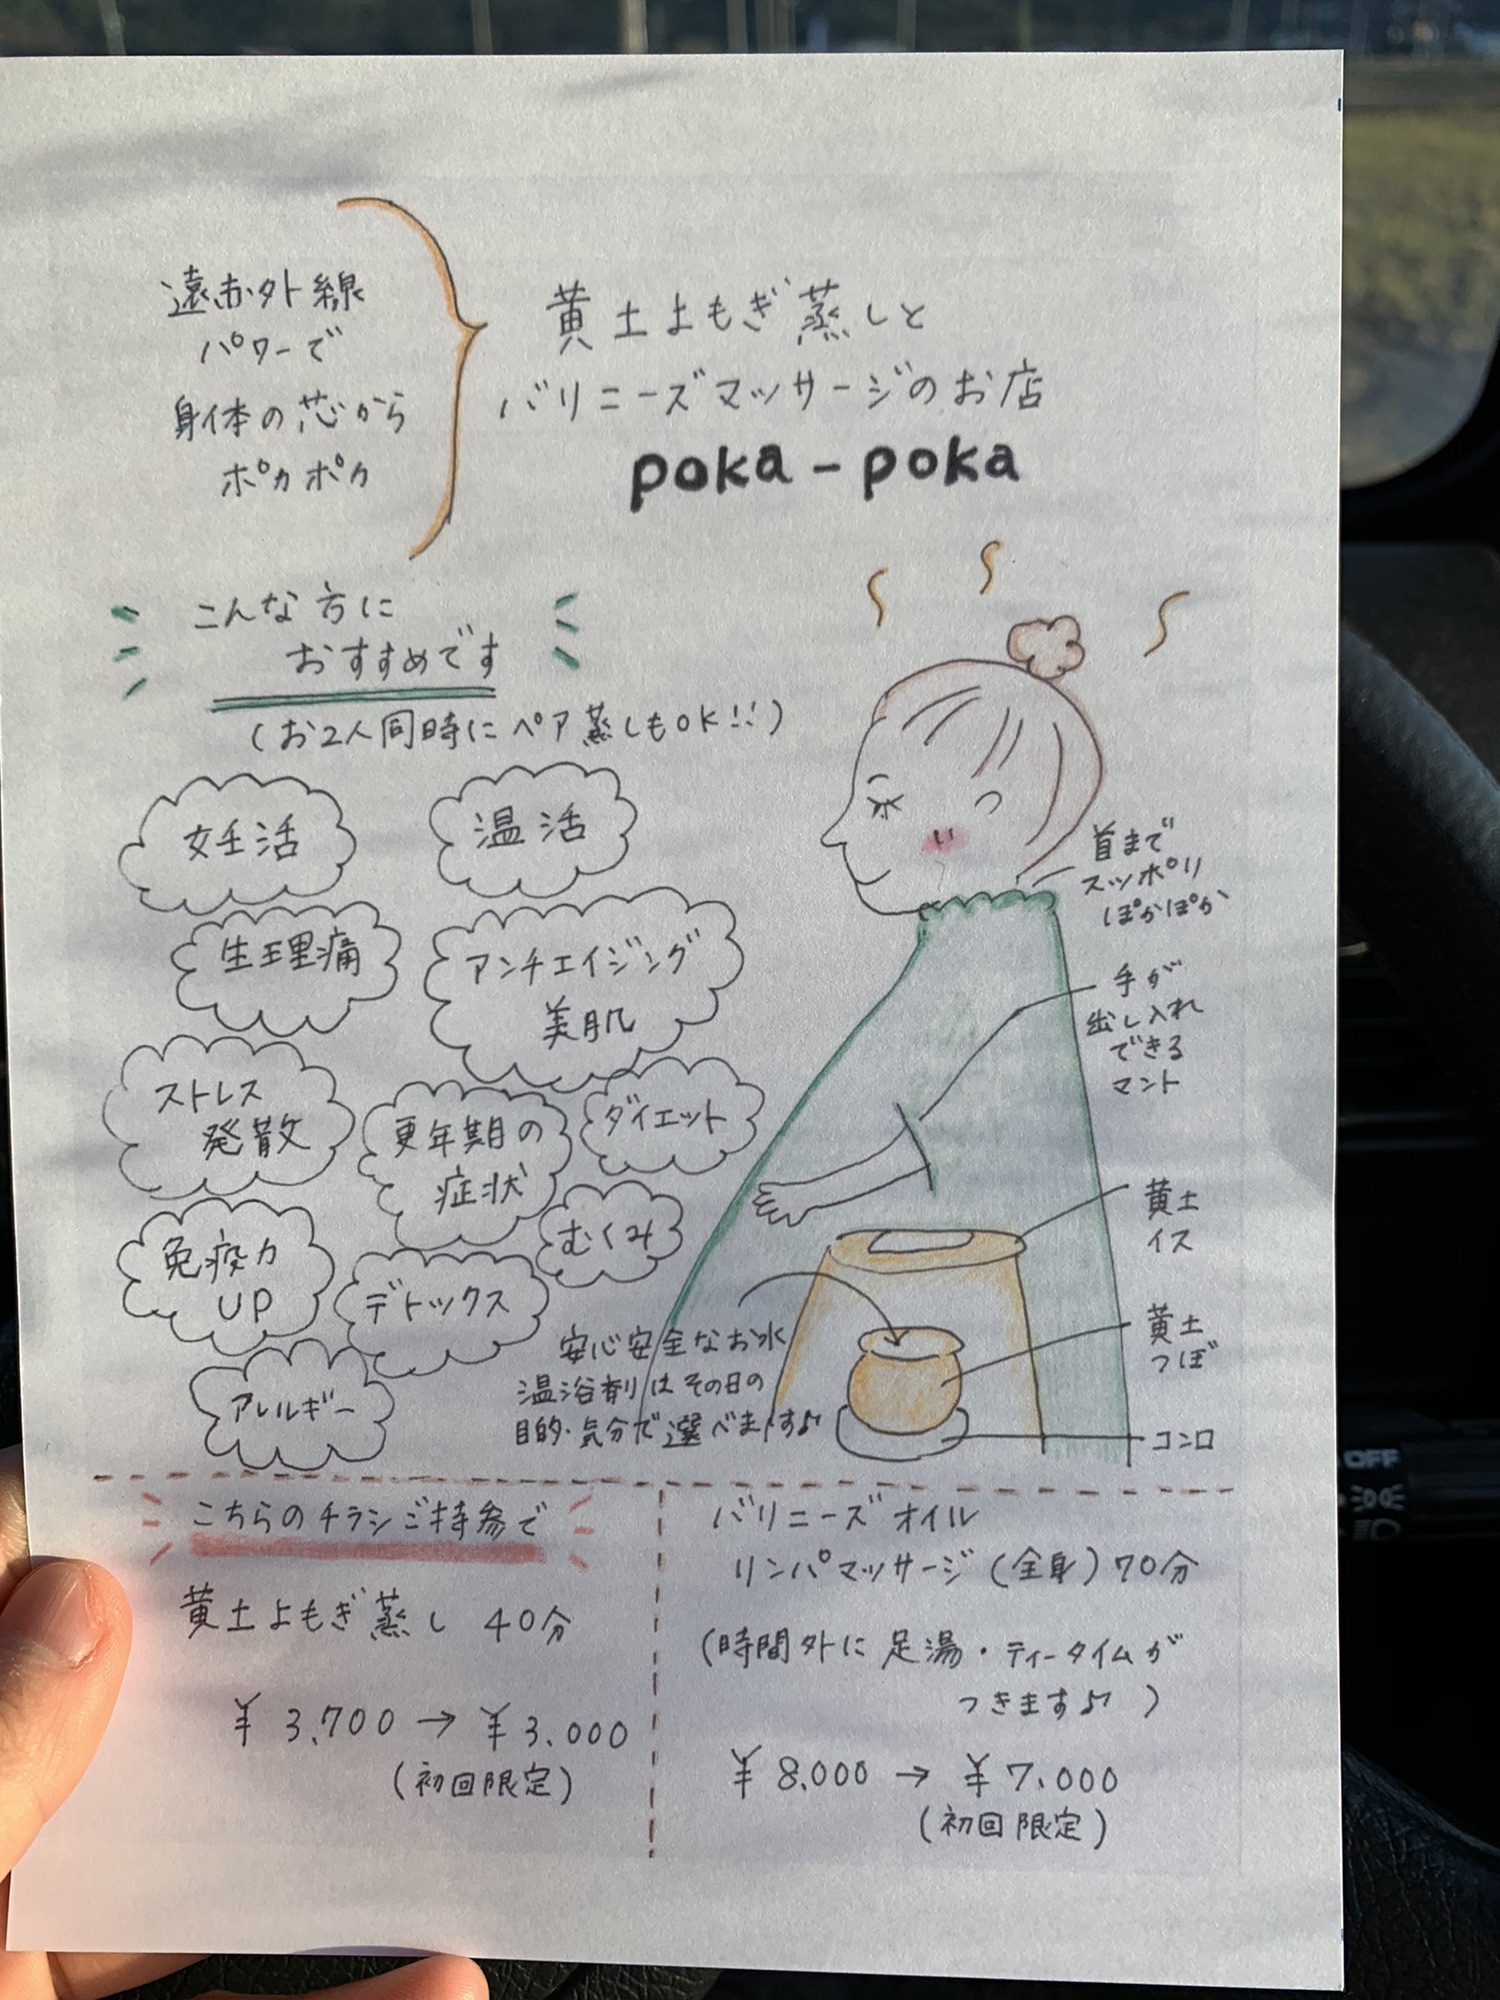 遠赤外線
パワーで
身体の芯から
ポカポカ
黄土よもぎ蒸しと
バリニーズマッサージのお店
poka-poka
こんな方に
おすすめです
(お2人同時にペア蒸しもOK!!)
妊活
温活
生理痛
アンチエイジング
美肌
ストレス
発散
更年期の
症状
ダイエット
むくみ
免疫力
UP
デトックス
アレルギー
首まで
スッポリ
ぽかぽか
手が
出し入れ
できる
マント
黄土
イス
黄土
つぼ
コンロ
安心安全なお水
温浴剤はその日の
目的・気分で選べます♪
こちらのチラシご持参で
黄土よもぎ蒸し 40分
¥3,700→¥3,000
(初回限定)
バリニーズオイル
リンパマッサージ(全身)70分
(時間外に足湯・ティータイムが
つきます♪)
¥8,000→¥7,000
(初回限定)
OFF